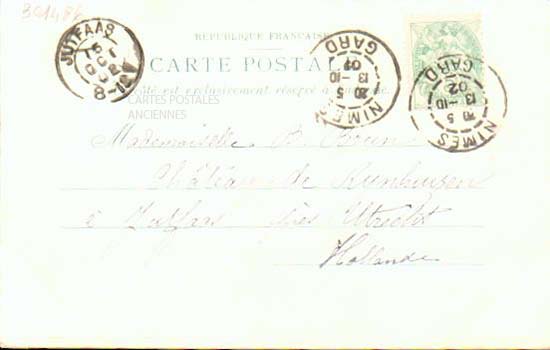 301486
RÉPUBLIQUE FRANÇAISE
CARTE POSTALE
Ce côté est exclusivement réservé à l'adresse
CARTES POSTALES
ANCIENNES
JUTFAAS
8-12V
NIMES
GARD
20 5
13-10
02
NIMES
GARD
20 5
13-10
02
Mademoiselle B. Brun
Château de
à Jutfaas près Utrecht
Hollande